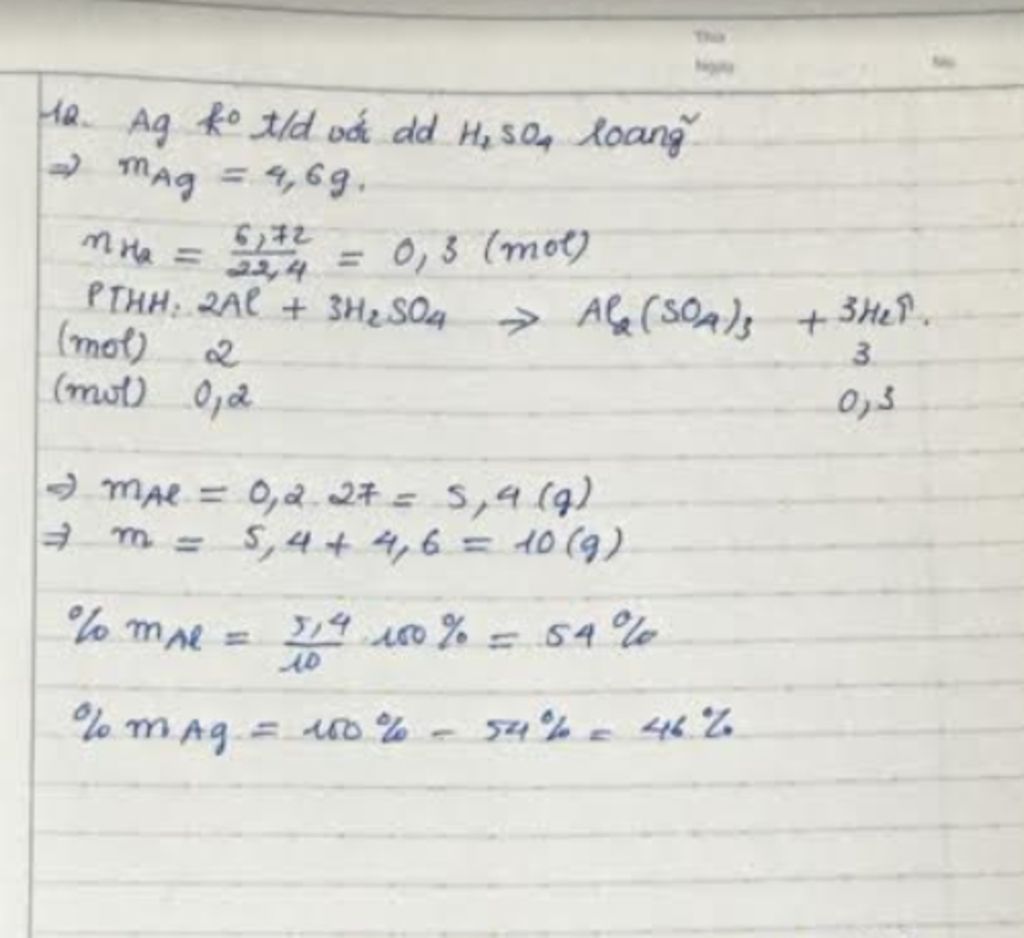 Thứ
Ngày
No.
12. Ag ko t/d với dd H₂SO₄ loãng
⇒ mAg = 4,6g.
nH₂ = 6,72/22,4 = 0,3 (mol)
PTHH: 2Al + 3H₂SO₄ → Al₂(SO₄)₃ + 3H₂↑.
(mol) 2 3
(mol) 0,2 0,3
⇒ mAl = 0,2.27 = 5,4 (g)
⇒ m = 5,4 + 4,6 = 10 (g)
% mAl = 5,4/10 .100% = 54%
% mAg = 100% - 54% = 46%